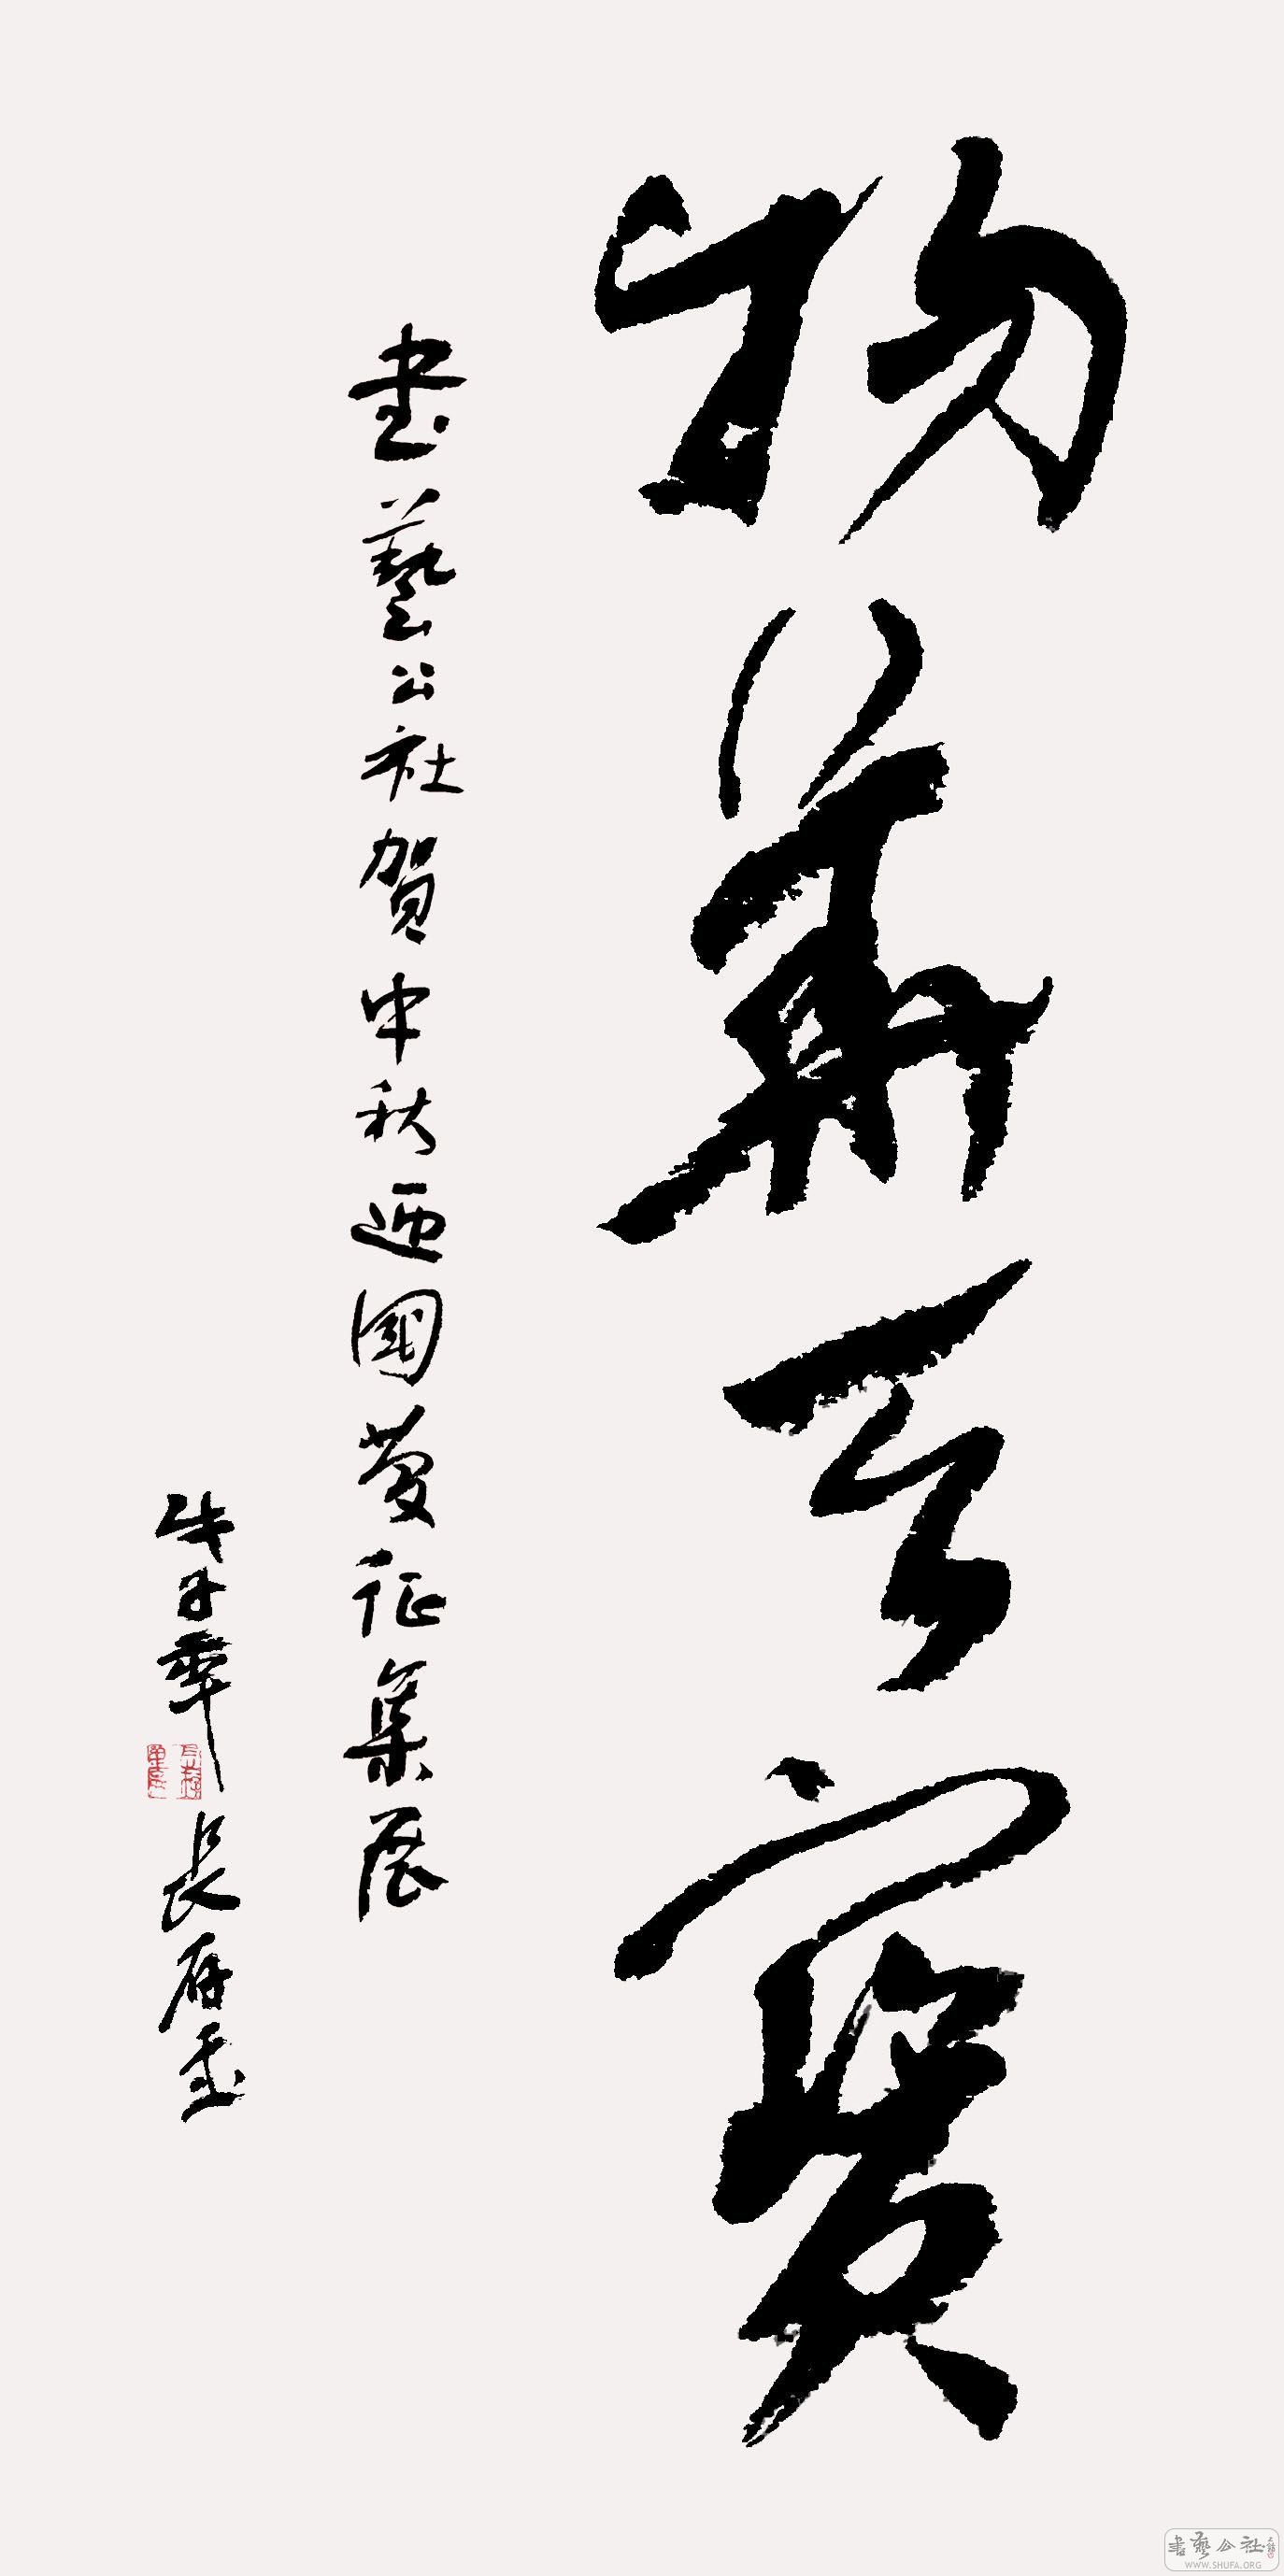 物華天寶
書藝公社賀中秋迎國慶征集展
戊子年長存書
書藝公社
WWW.SHUFA.ORG